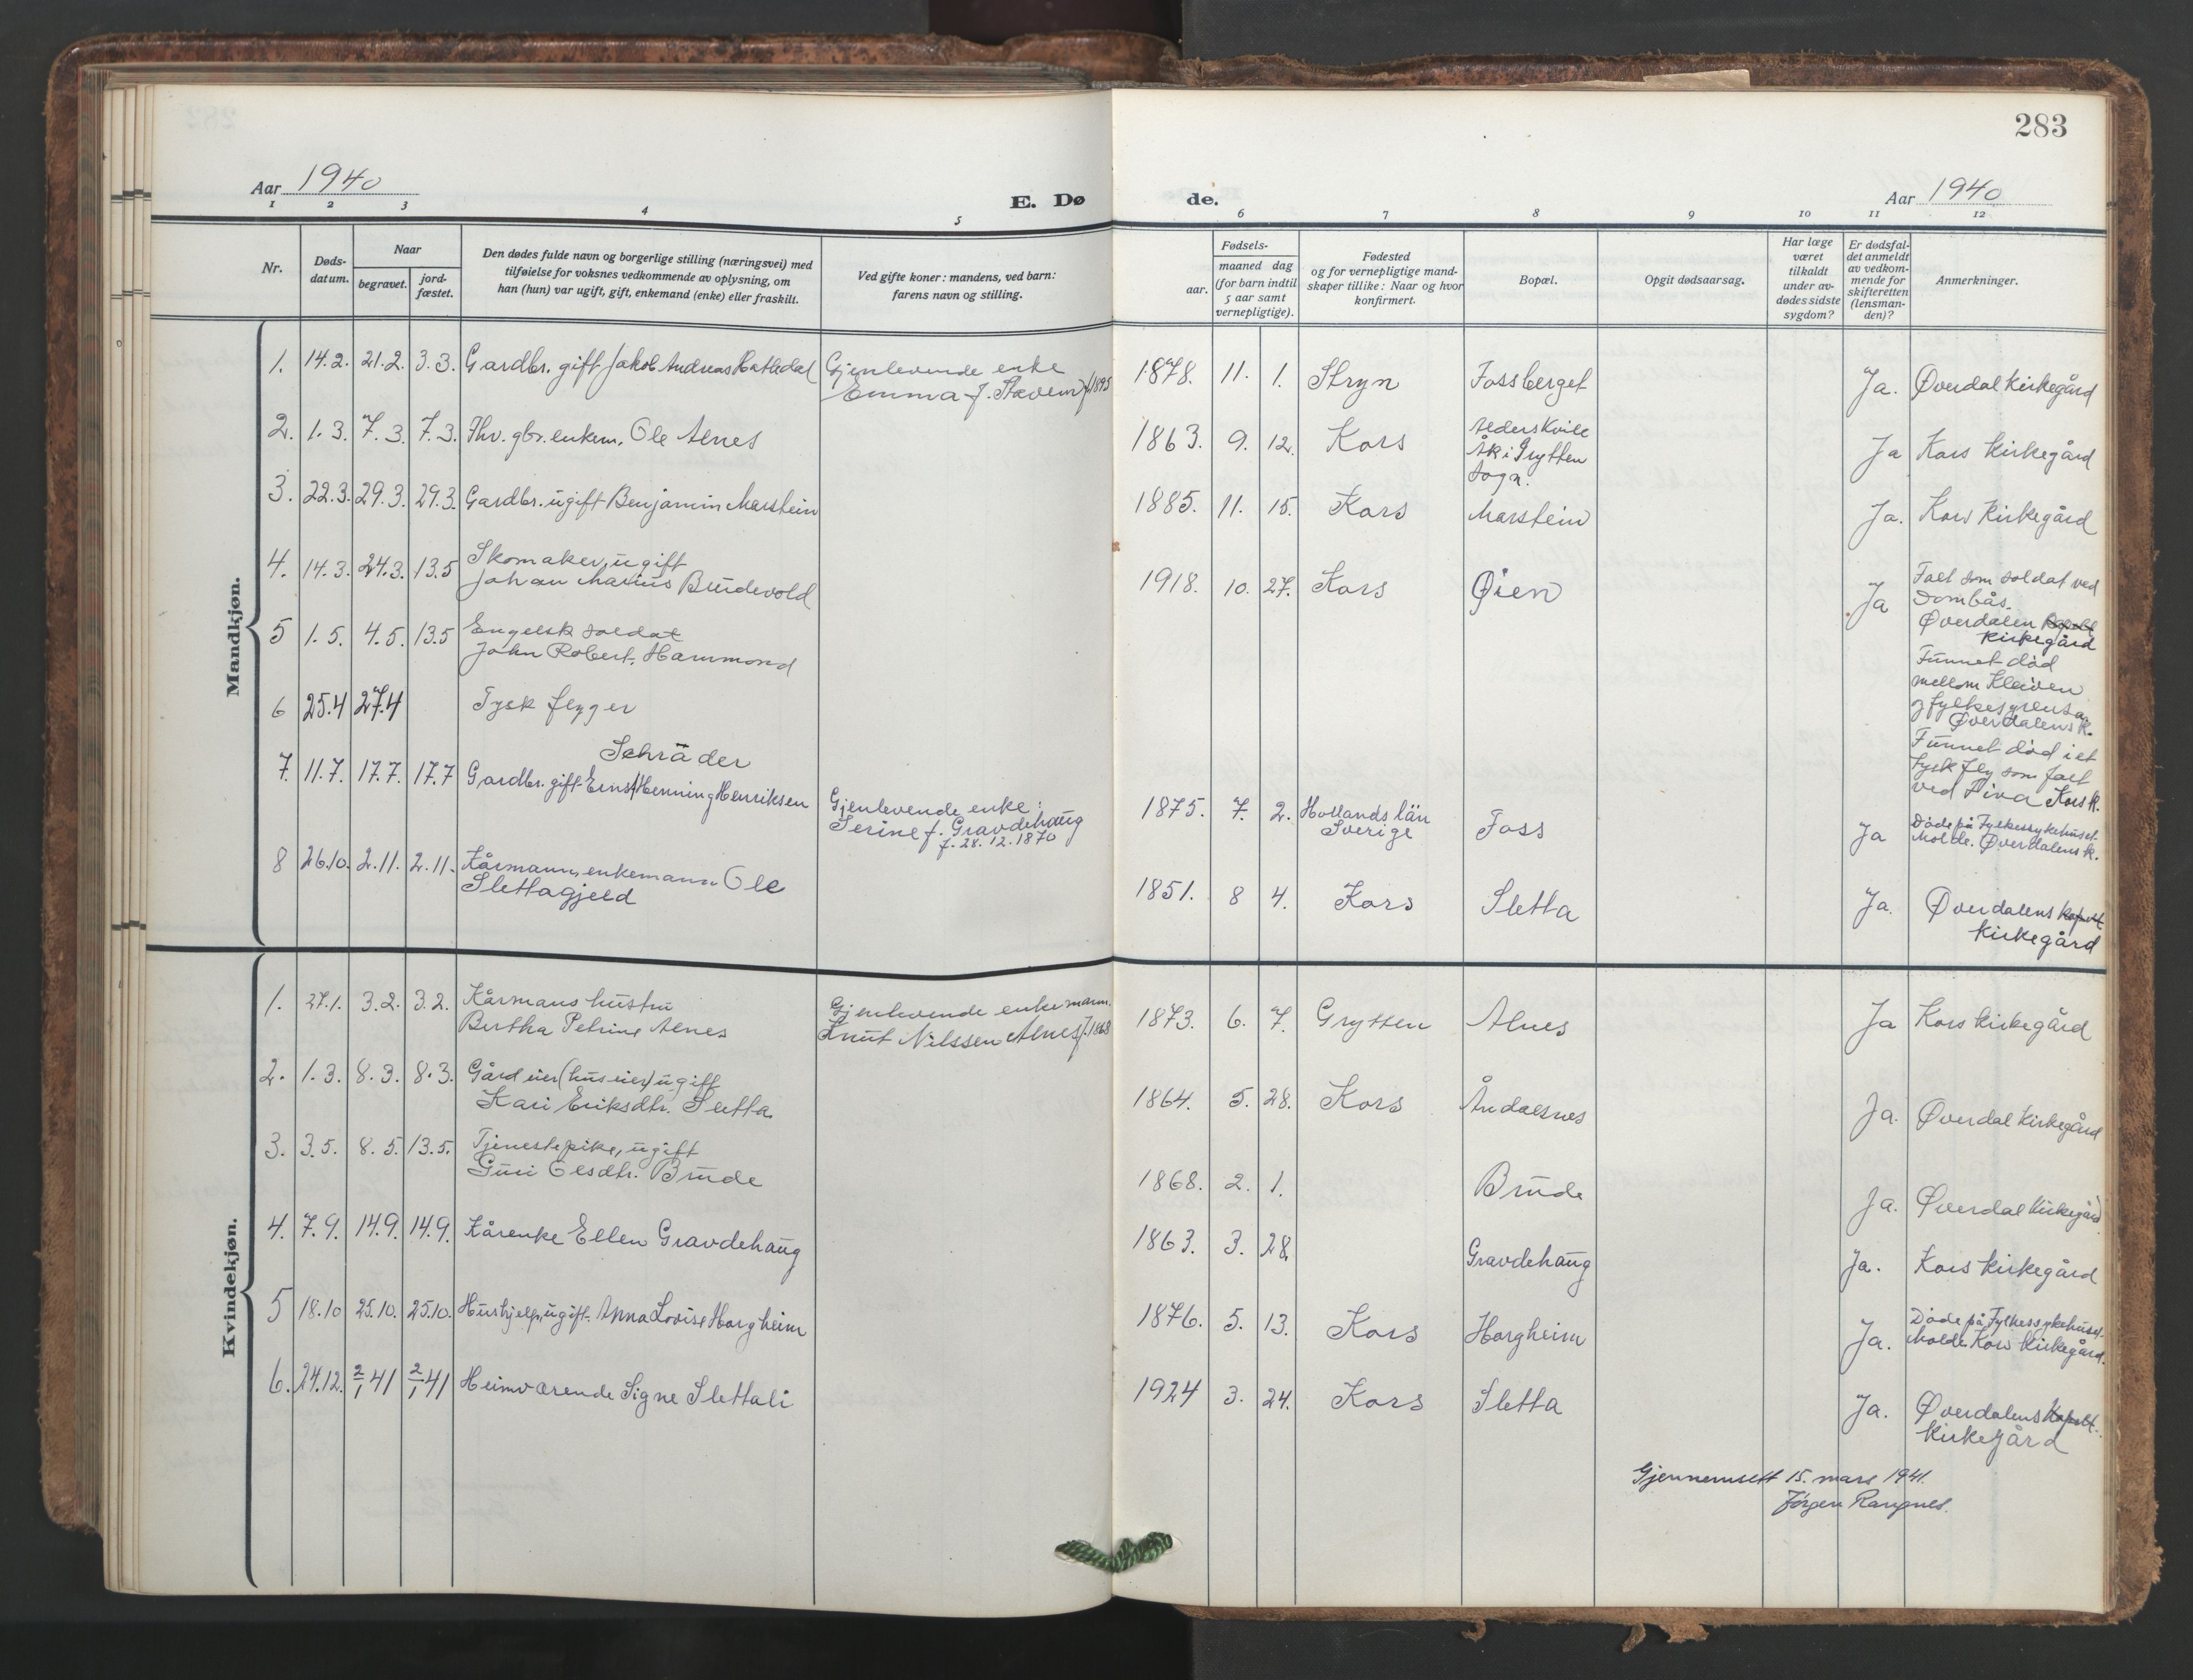 283
Aar 1940
E. Dø
de.
Aar 1940
1 2 3 4 5 6 7 8 9 10 11 12
Nr.
Døds-
datum.
Naar
begravet.
jord-
fæstet.
Den dødes fulde navn og borgerlige stilling (næringsvei) med
tilføielse for voksnes vedkommende av oplysning, om
han (hun) var ugift, gift, enkemand (enke) eller fraskilt.
Ved gifte koner: mandens, ved barn:
farens navn og stilling.
Fødsels-
aar.
maaned dag
(for barn indtil
5 aar samt
vernepligtige).
Fødested
og for vernepligtige mand-
skaper tillike: Naar og hvor
konfirmert.
Bopæl.
Opgit dødsaarsag.
Har læge
været
tilkaldt
under av-
dødes sidste
sygdom?
Er dødsfal-
det anmeldt
av vedkom-
mende for
skifteretten
(lensman-
den)?
Anmerkninger.
Mandkjøn.
1. 14.2. 21.2. 3.3. Gardbr. gift Jakob Andreas Hatledal
Gjenlevende enke
Emma f. Stavem f. 1895
1878. 11. 1. Stryn Fossberget Ja. Øverdal Kirkegård
2. 1.3. 7.3. 7.3. Fhv. gbr. enkem. Ole Alnes
1863. 9. 12. Kors
Alders Kvile
Åk i Grytten
sogn.
Ja Kors Kirkegård
3. 22.3. 29.3. 29.3. Gardbr. ugift Benjamin Marstein
1885. 11. 15. Kors Marstein Ja. Kors Kirkegård
4. 14.3. 24.3. 13.5 Skomaker, ugift
Johan Marius Brudevold
1918. 10. 27. Kors Øien Ja
Falt som soldat ved
Dombås.
Øverdalen kapell
Kirkegård
5 1.5. 4.5. 13.5 Engelsk soldat
John Robert Hammond
Funnet død
mellom Kleiven
og fylkesgrensa.
Øverdalens K.
6 25.4 27.4 Tysk flyger
Funnet død i et
tysk fly som falt
ved Kors K.
Schräder
7. 11.7. 17.7. 17.7 Gardbr. gift Ernst Henning Henriksen
Gjenlevende enke:
Serine f. Gravdehaug
f. 28.12.1870
1875. 7. 2. Hallands län
Sverige
Foss Ja
Døde på Fylkessykehuset
Molde. Øverdalens K.
8 26.10. 2.11. 2.11. Kårmann, enkemann Ole
Slettagjeld
1851. 8 4. Kors Sletta Ja.
Øverdalens kapell
Kirkegård
Kvindekjøn.
1. 27.1. 3.2. 3.2. Kårmans hustru
Bertha Petrine Alnes
Gjenlevende enkemann.
Knut Nilssen Alnes f. 1868
1873. 6. 7. Grytten Alnes Ja Kors Kirkegård
2. 1.3. 8.3. 8.3. Gårdeier (huseier) ugift
Kari Eriksdtr. Sletta
1864. 5. 28. Kors Åndalsnes Ja. Øverdal Kirkegård
3. 3.5. 8.5. 13.5. Tjenestepike, ugift
Guri Olsdtr. Brude
1868. 2. 1. Brude Ja. Øverdal Kirkegård
4. 7.9. 14.9. 14.9. Kårenke Ellen Gravdehaug
1863. 3. 28. Gravdehaug Ja. Kors Kirkegård
5 18.10 25.10. 25.10. Hushjelp, ugift. Anna Lovise Horgheim
1876. 5. 13. Kors Horgheim Ja.
Døde på Fylkessykehuset
Molde. Kors Kirkegård.
6. 24.12. 2/1 41 2/1 41 Heimværende Signe Slettali
1924 3. 24. Kors Sletta Ja.
Øverdalens kapell.
Kirkegård
Gjennemsett 15. mars 1941.
Jörgen